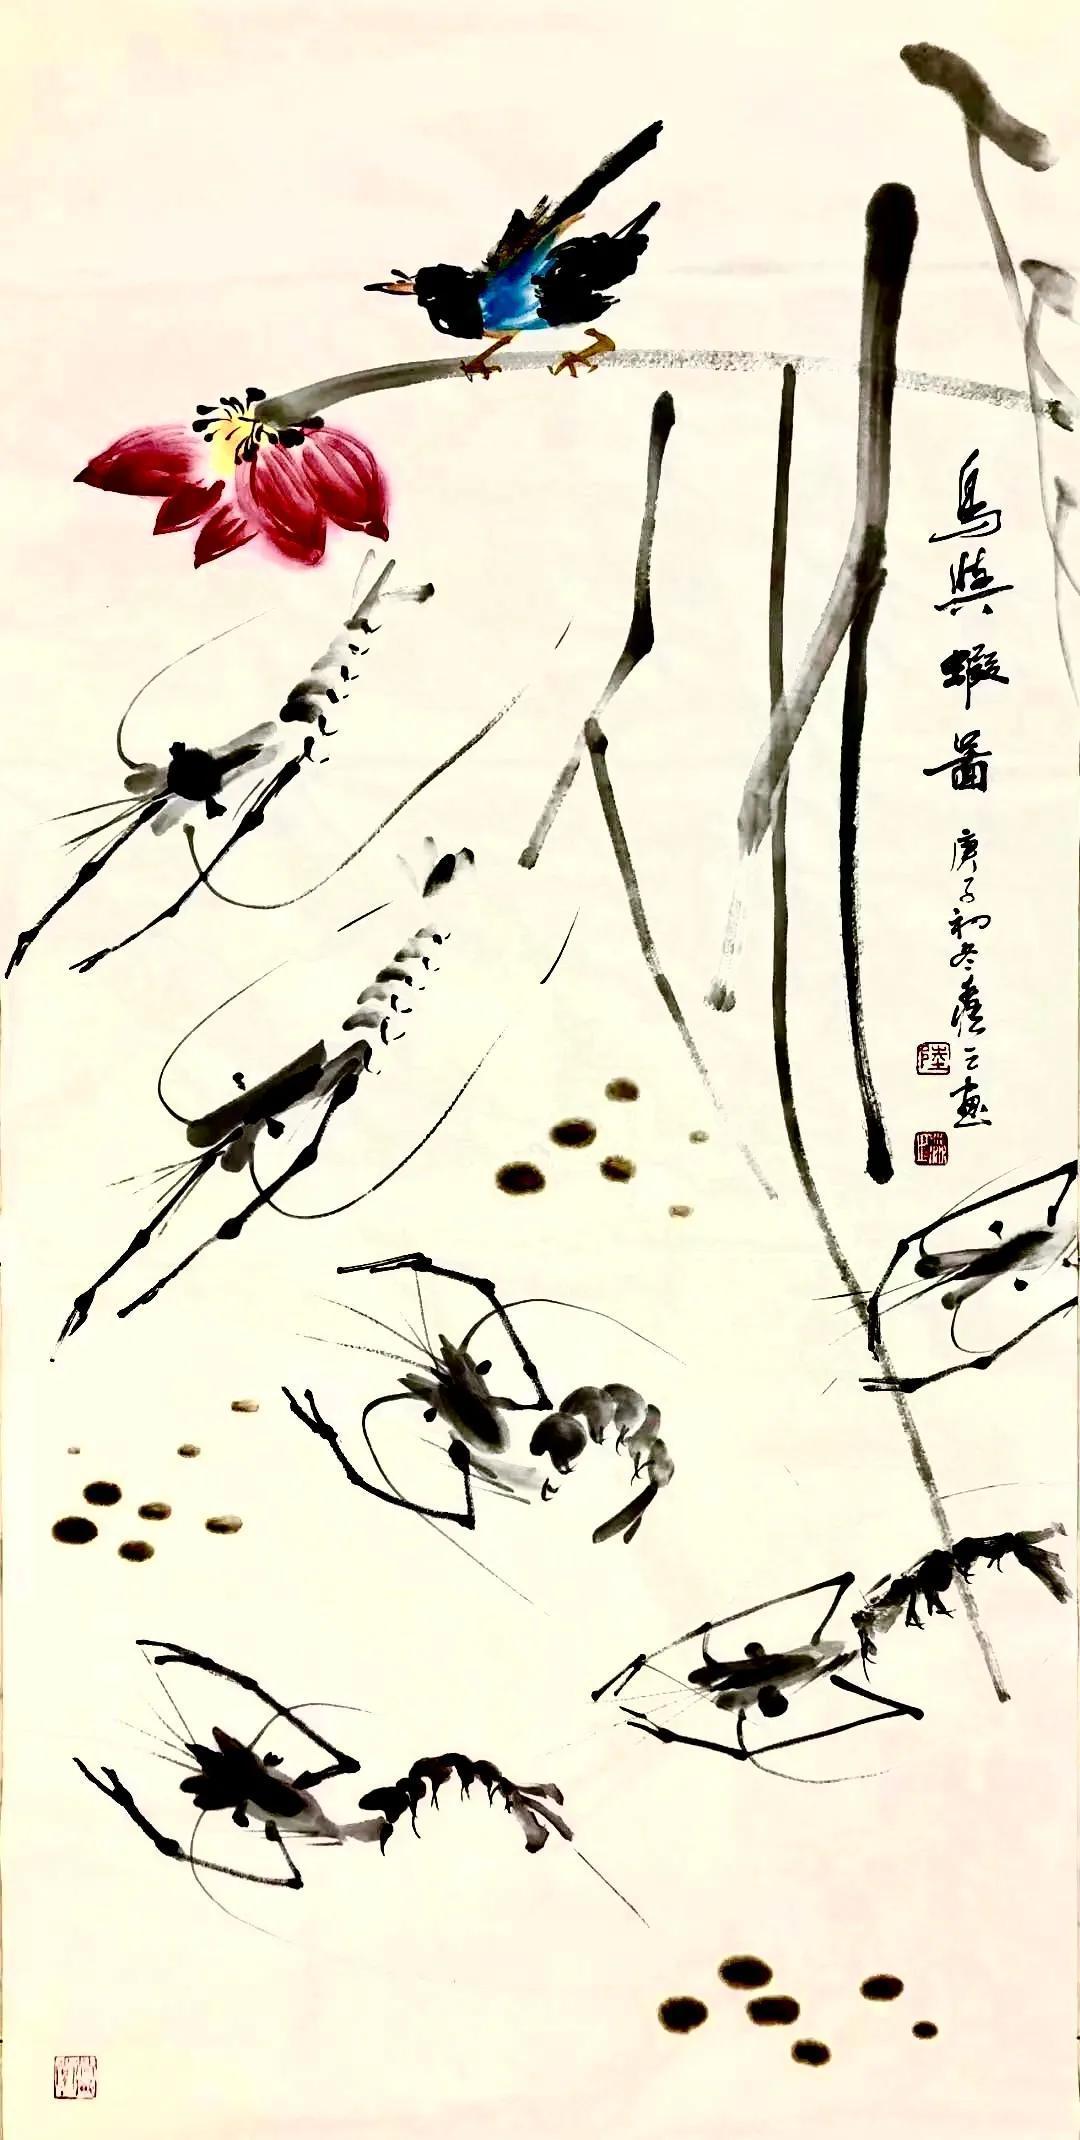 鳥與蝦圖
庚子初冬
畫
陸